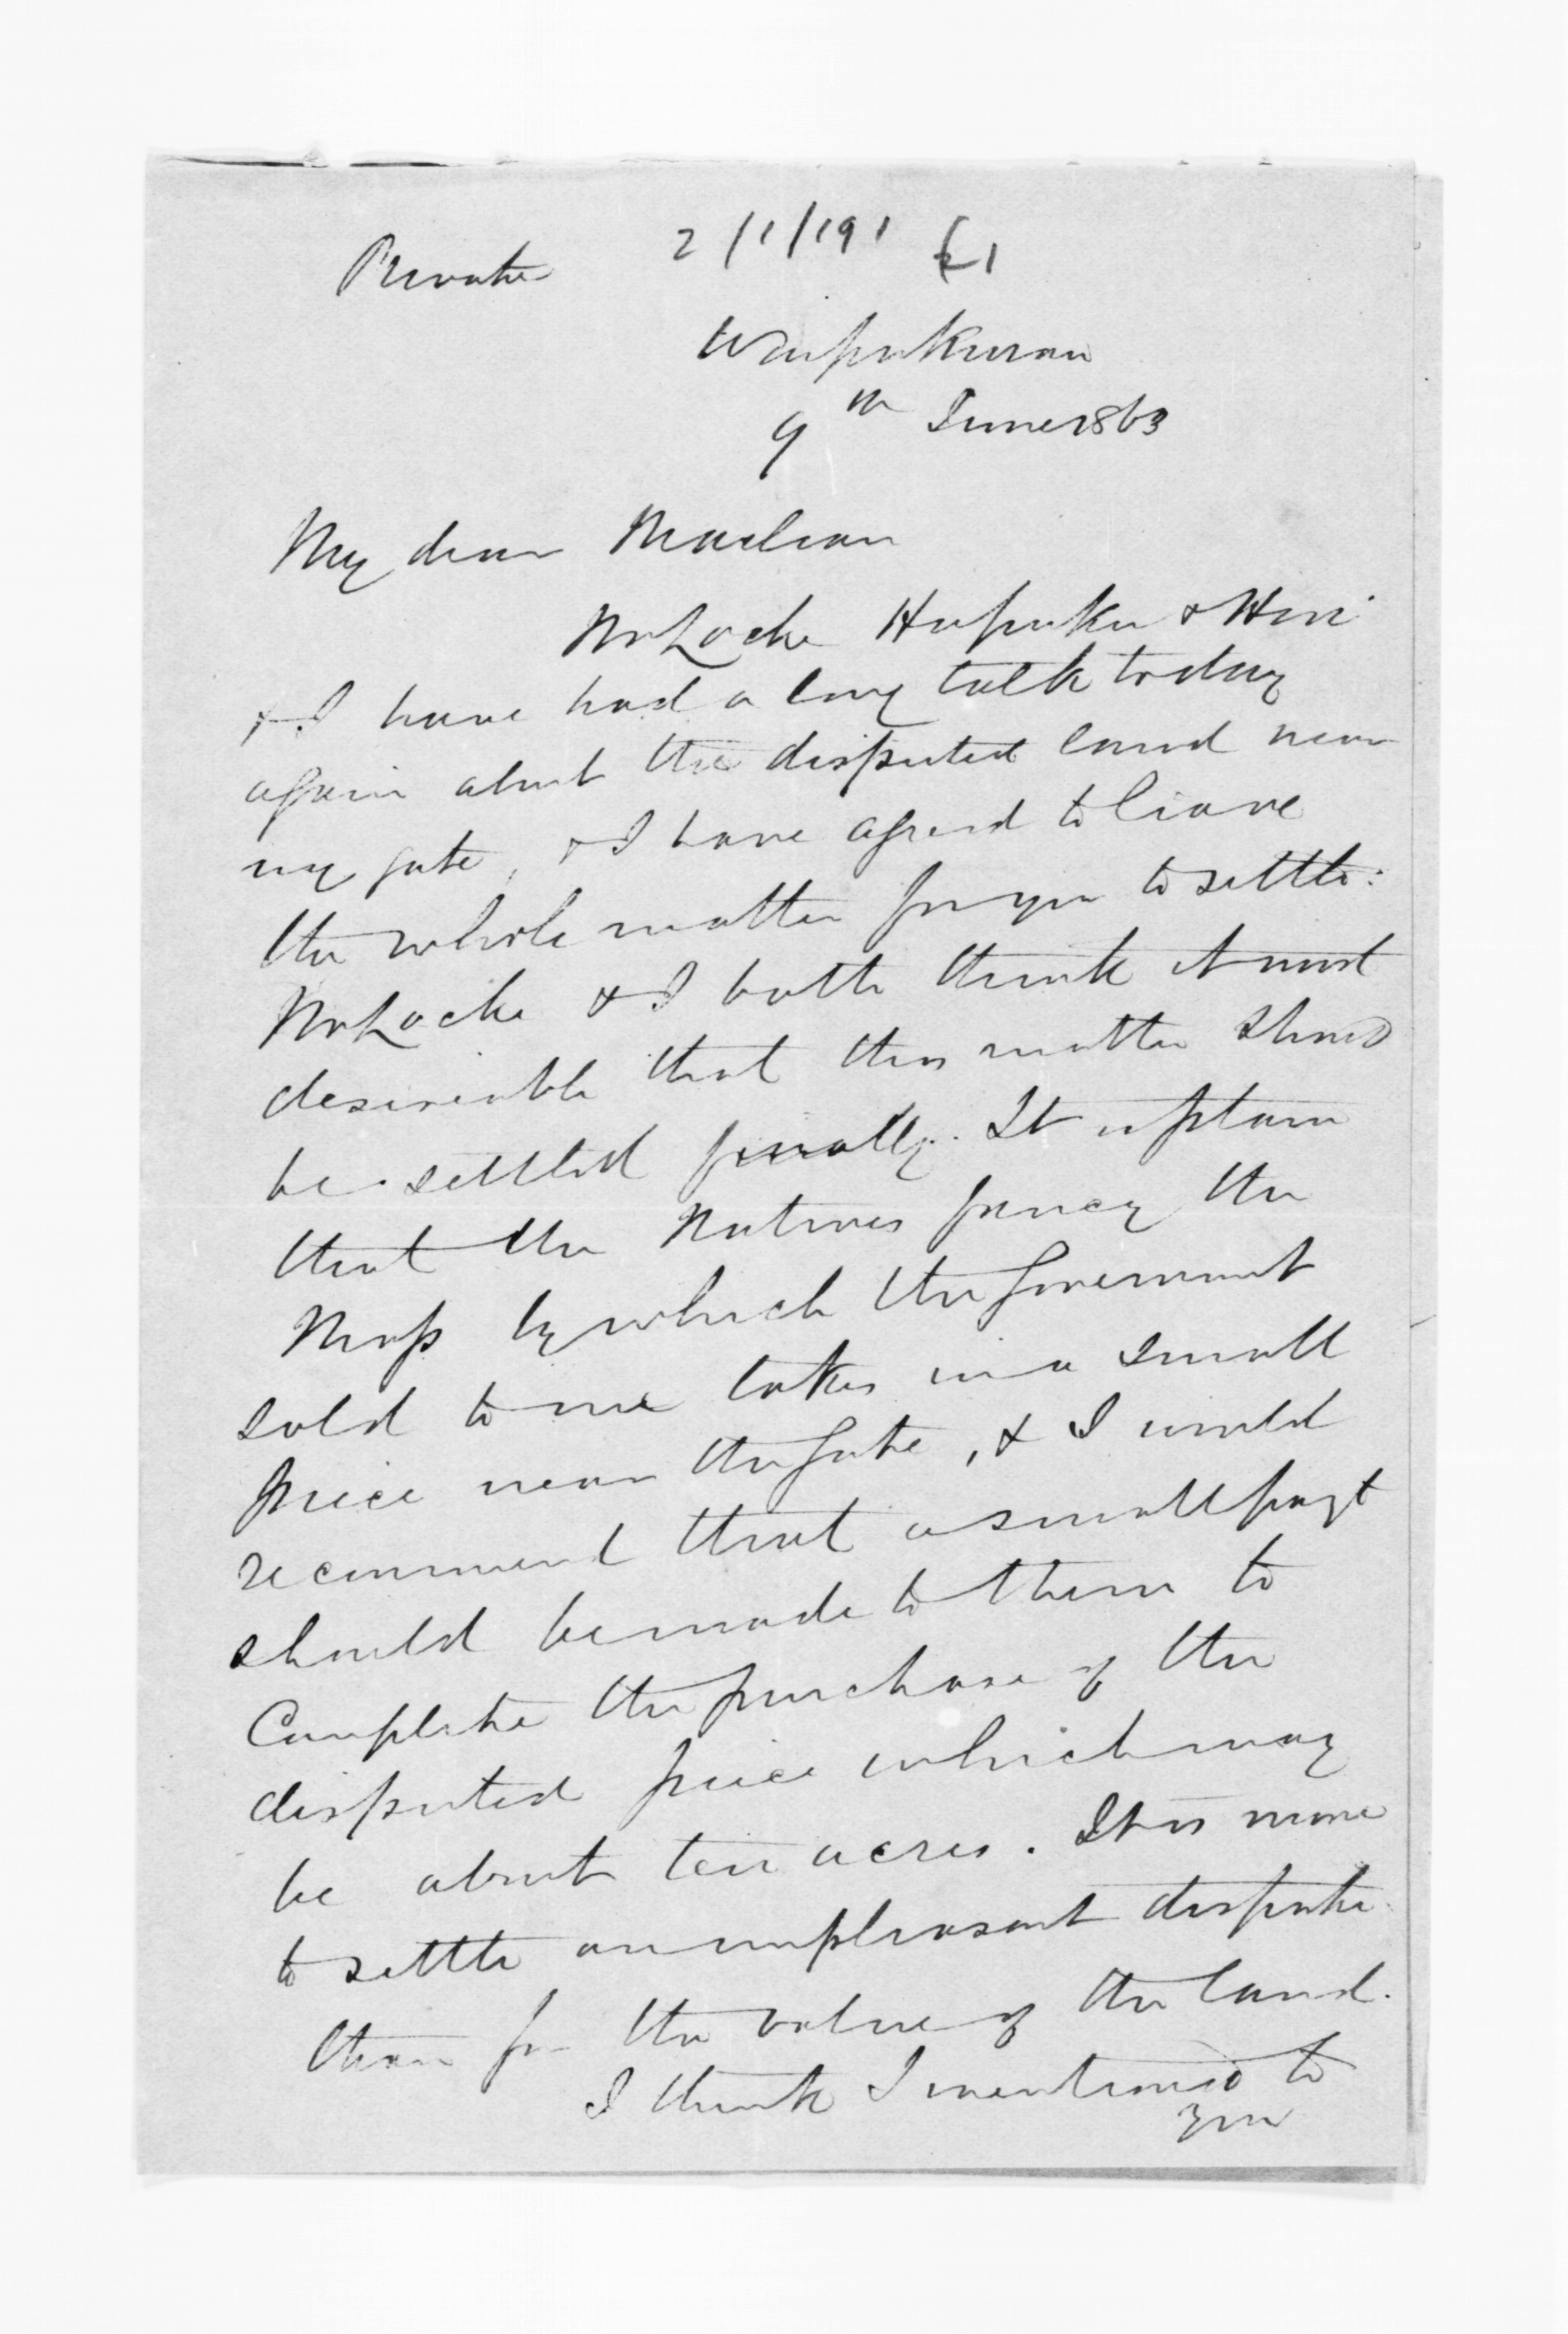 Private 2/1/191 £1
Waipukurau
9th June 1863
My dear Maclean
Mr Locke Hapuku & Heri
& I have had a long talk today
again about the disputed land near
my gate, & I have agreed to leave
the whole matter for you to settle:
Mr Locke & I both think it most
desireable that this matter should
be settled finally. It is plain
that the Natives fancy the
Map by which the Government
sold to me takes in a small
piece near the gate, & I would
recommend that a small payt
should be made to them to
Complete the purchase of the
disputed piece which may
be about ten acres. It is more
to settle an unpleasant dispute
than for the value of the land.
I think I mentioned to
you